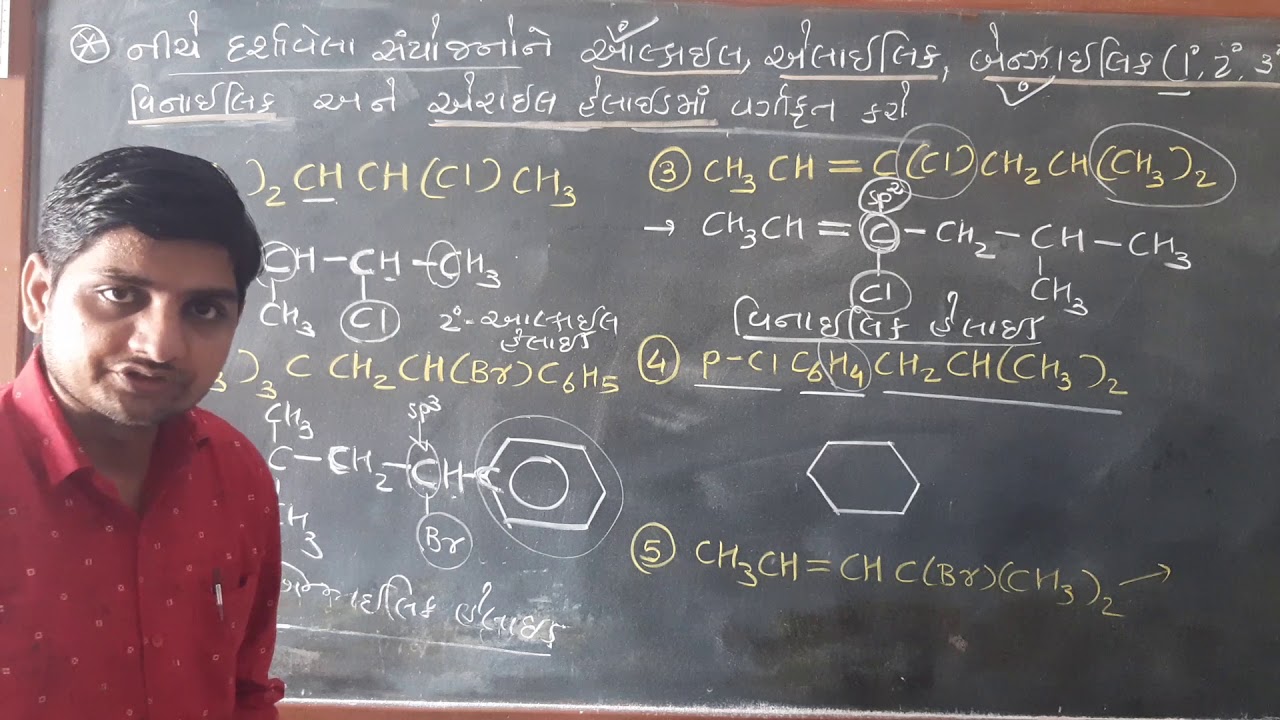 ⊛ નીચે દર્શાવેલા સંયોજનોને આલ્કાઇલ, એલાઇલિક, બેન્ઝાઇલિક (1°, 2°, 3°
વિનાઇલિક અને એરાઇલ હેલાઇડમાં વર્ગીકૃત કરો
)₂ CH CH (Cl) CH₃
CH – CH – CH₃
CH₃ Cl
2°-આલ્કાઇલ
હેલાઇડ
)₃ C CH₂ CH(Br) C₆H₅
CH₃ sp³
C – CH₂ – CH – C
CH₃ Br
બેન્ઝાઇલિક હેલાઇડ
③ CH₃ CH = C (Cl) CH₂ CH (CH₃)₂
sp²
→ CH₃CH = C – CH₂ – CH – CH₃
Cl CH₃
વિનાઇલિક હેલાઇડ
④ P-Cl C₆H₄ CH₂ CH(CH₃)₂
⑤ CH₃CH = CH C(Br)(CH₃)₂ →